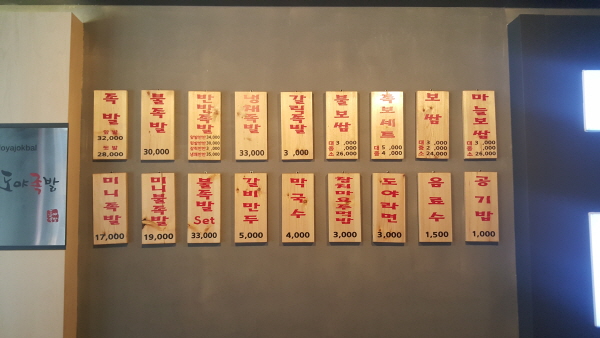 oyajokbal
도야족발
족발
앞발
32,000
뒷발
28,000
불족발
30,000
반반족발
34,000
34,000
35,000
냉채족발
33,000
갈릭족발
3 ,000
불보쌈
대 3 ,000
중 ,000
소 26,000
족보세트
대 5 ,000
중 4 ,000
보쌈
대 3 ,000
중 2 ,000
소 24,000
마늘보쌈
대 3 ,000
중 ,000
소 26,000
미니족발
17,000
미니불족발
19,000
불족발
Set
33,000
갈비만두
5,000
막국수
4,000
참치마요주먹밥
3,000
도야라면
3,000
음료수
1,500
공기밥
1,000